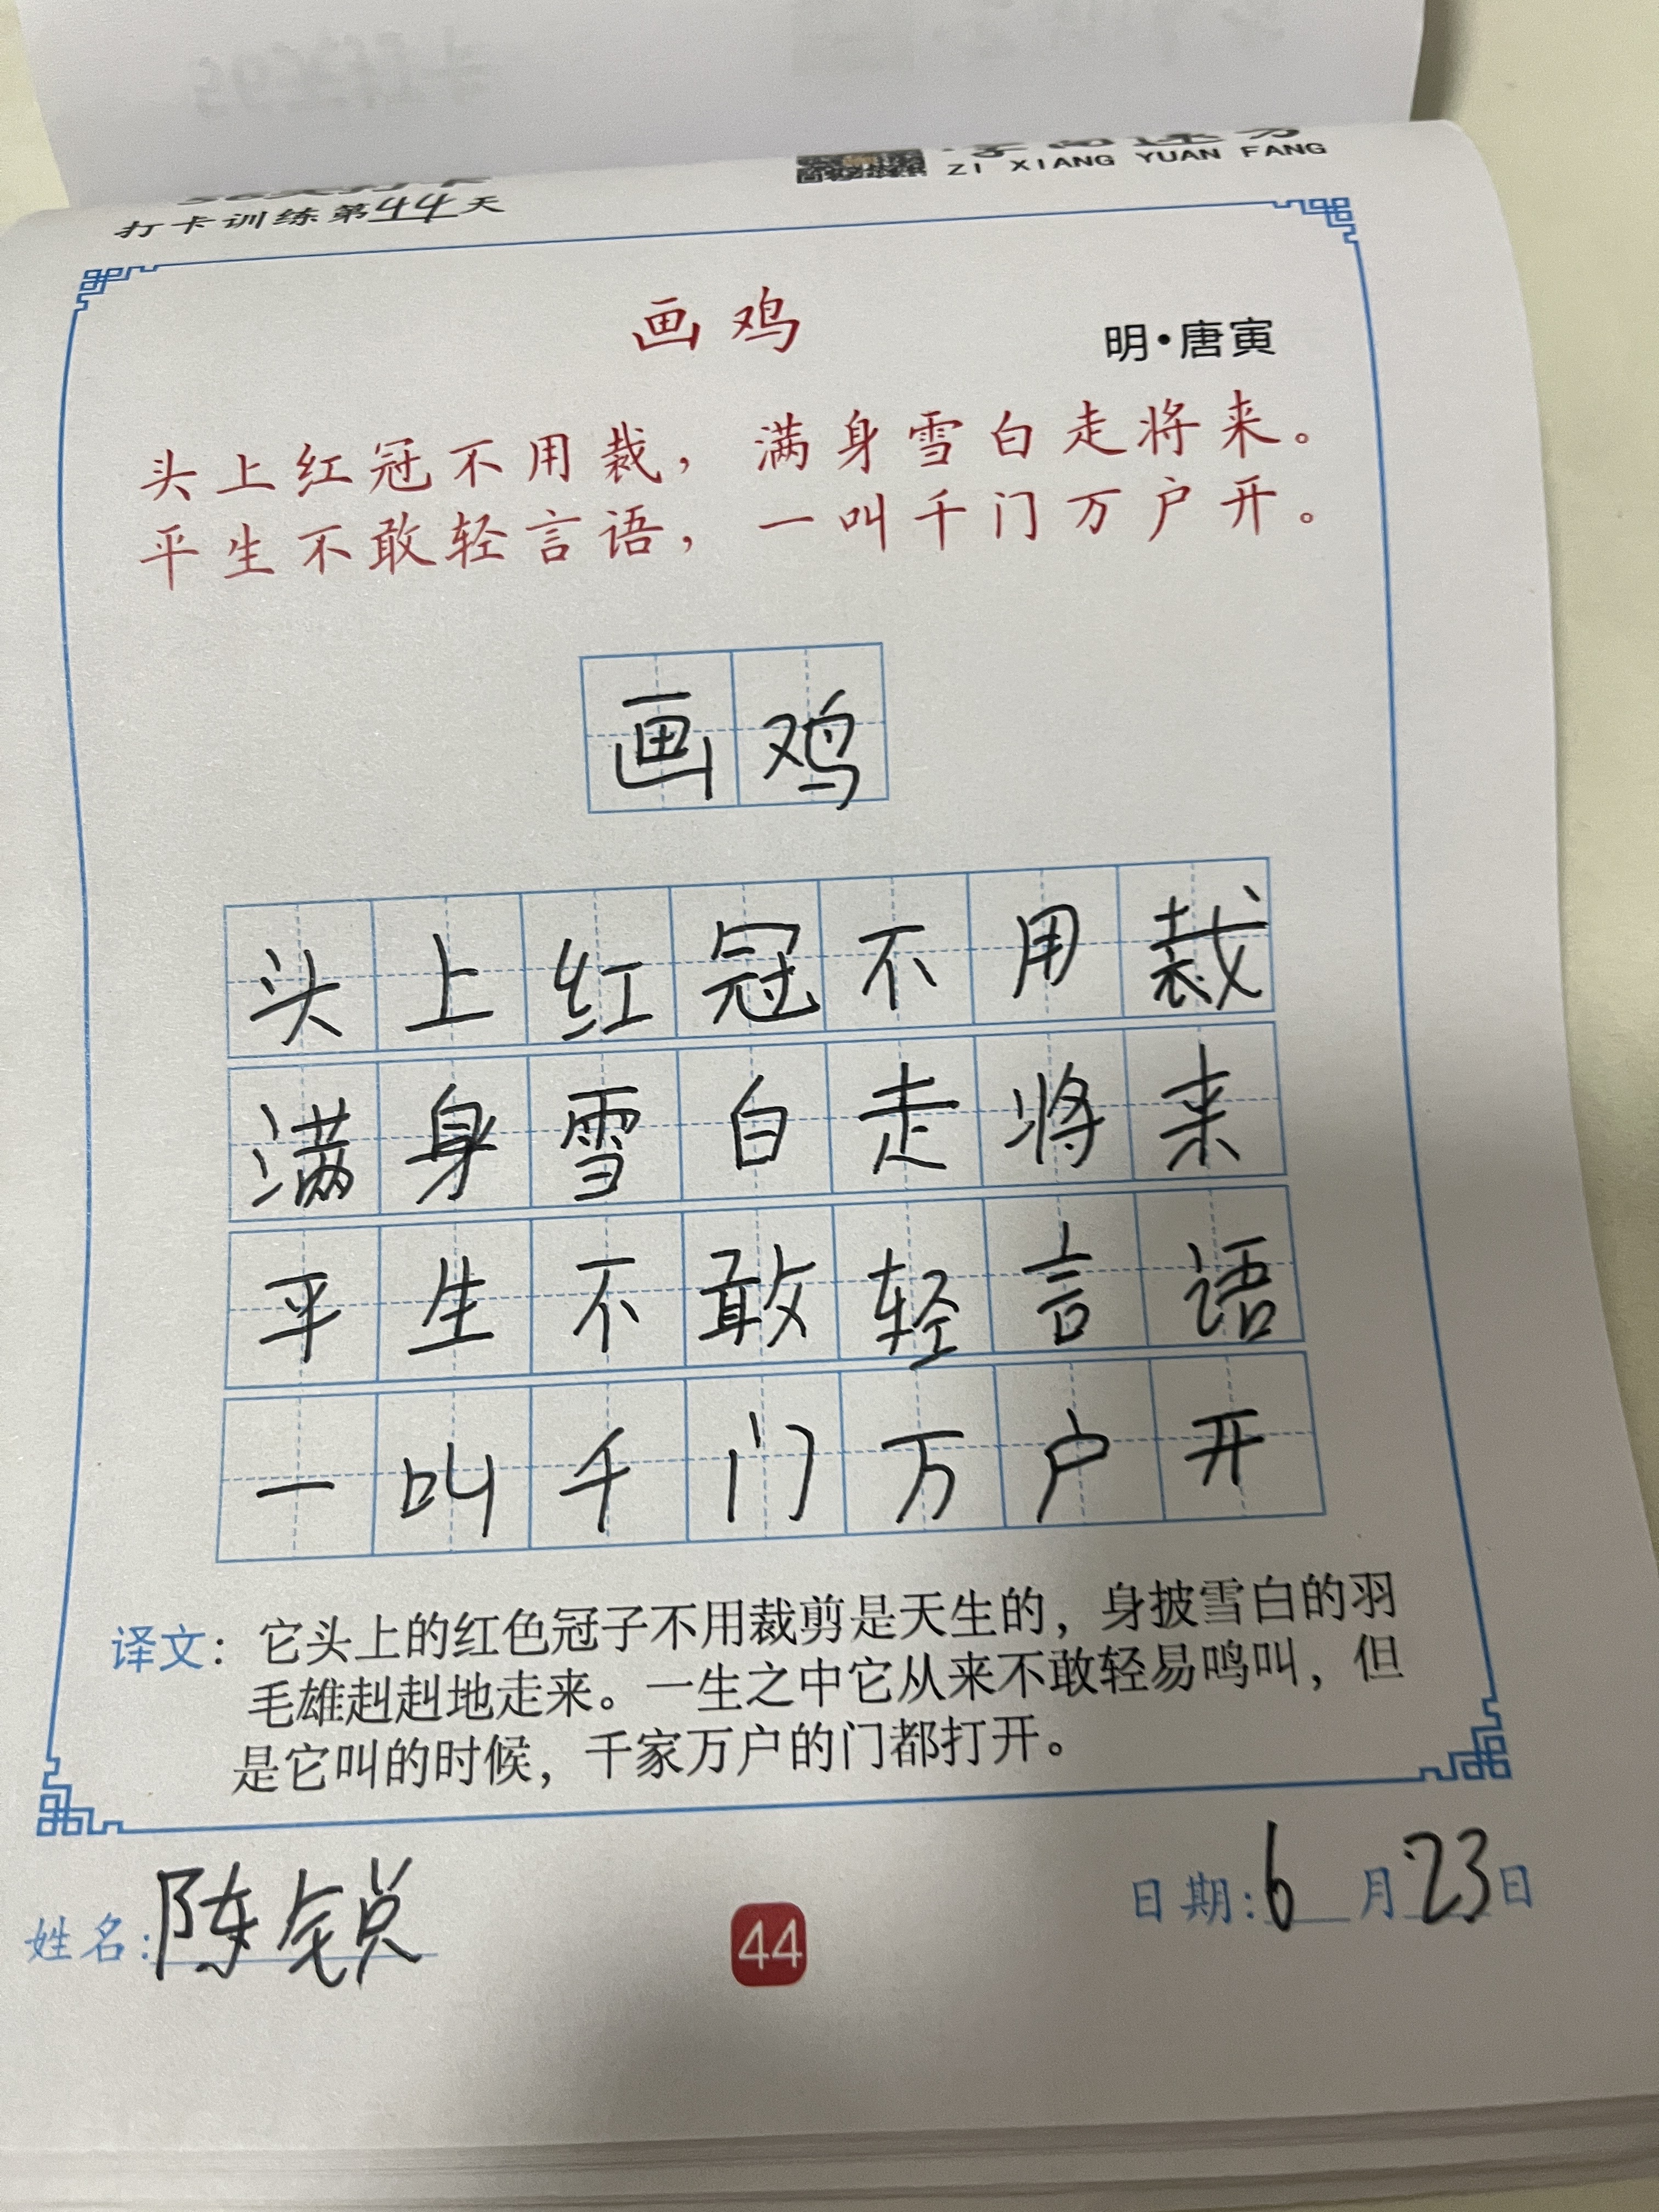 ZI XIANG YUAN FANG
打卡训练第44天
画鸡
明·唐寅
头上红冠不用裁，满身雪白走将来。
平生不敢轻言语，一叫千门万户开。
画鸡
头上红冠不用裁
满身雪白走将来
平生不敢轻言语
一叫千门万户开
译文：它头上的红色冠子不用裁剪是天生的，身披雪白的羽
毛雄赳赳地走来。一生之中它从来不敢轻易鸣叫，但
是它叫的时候，千家万户的门都打开。
姓名：陈锐
日期：6月23日
44